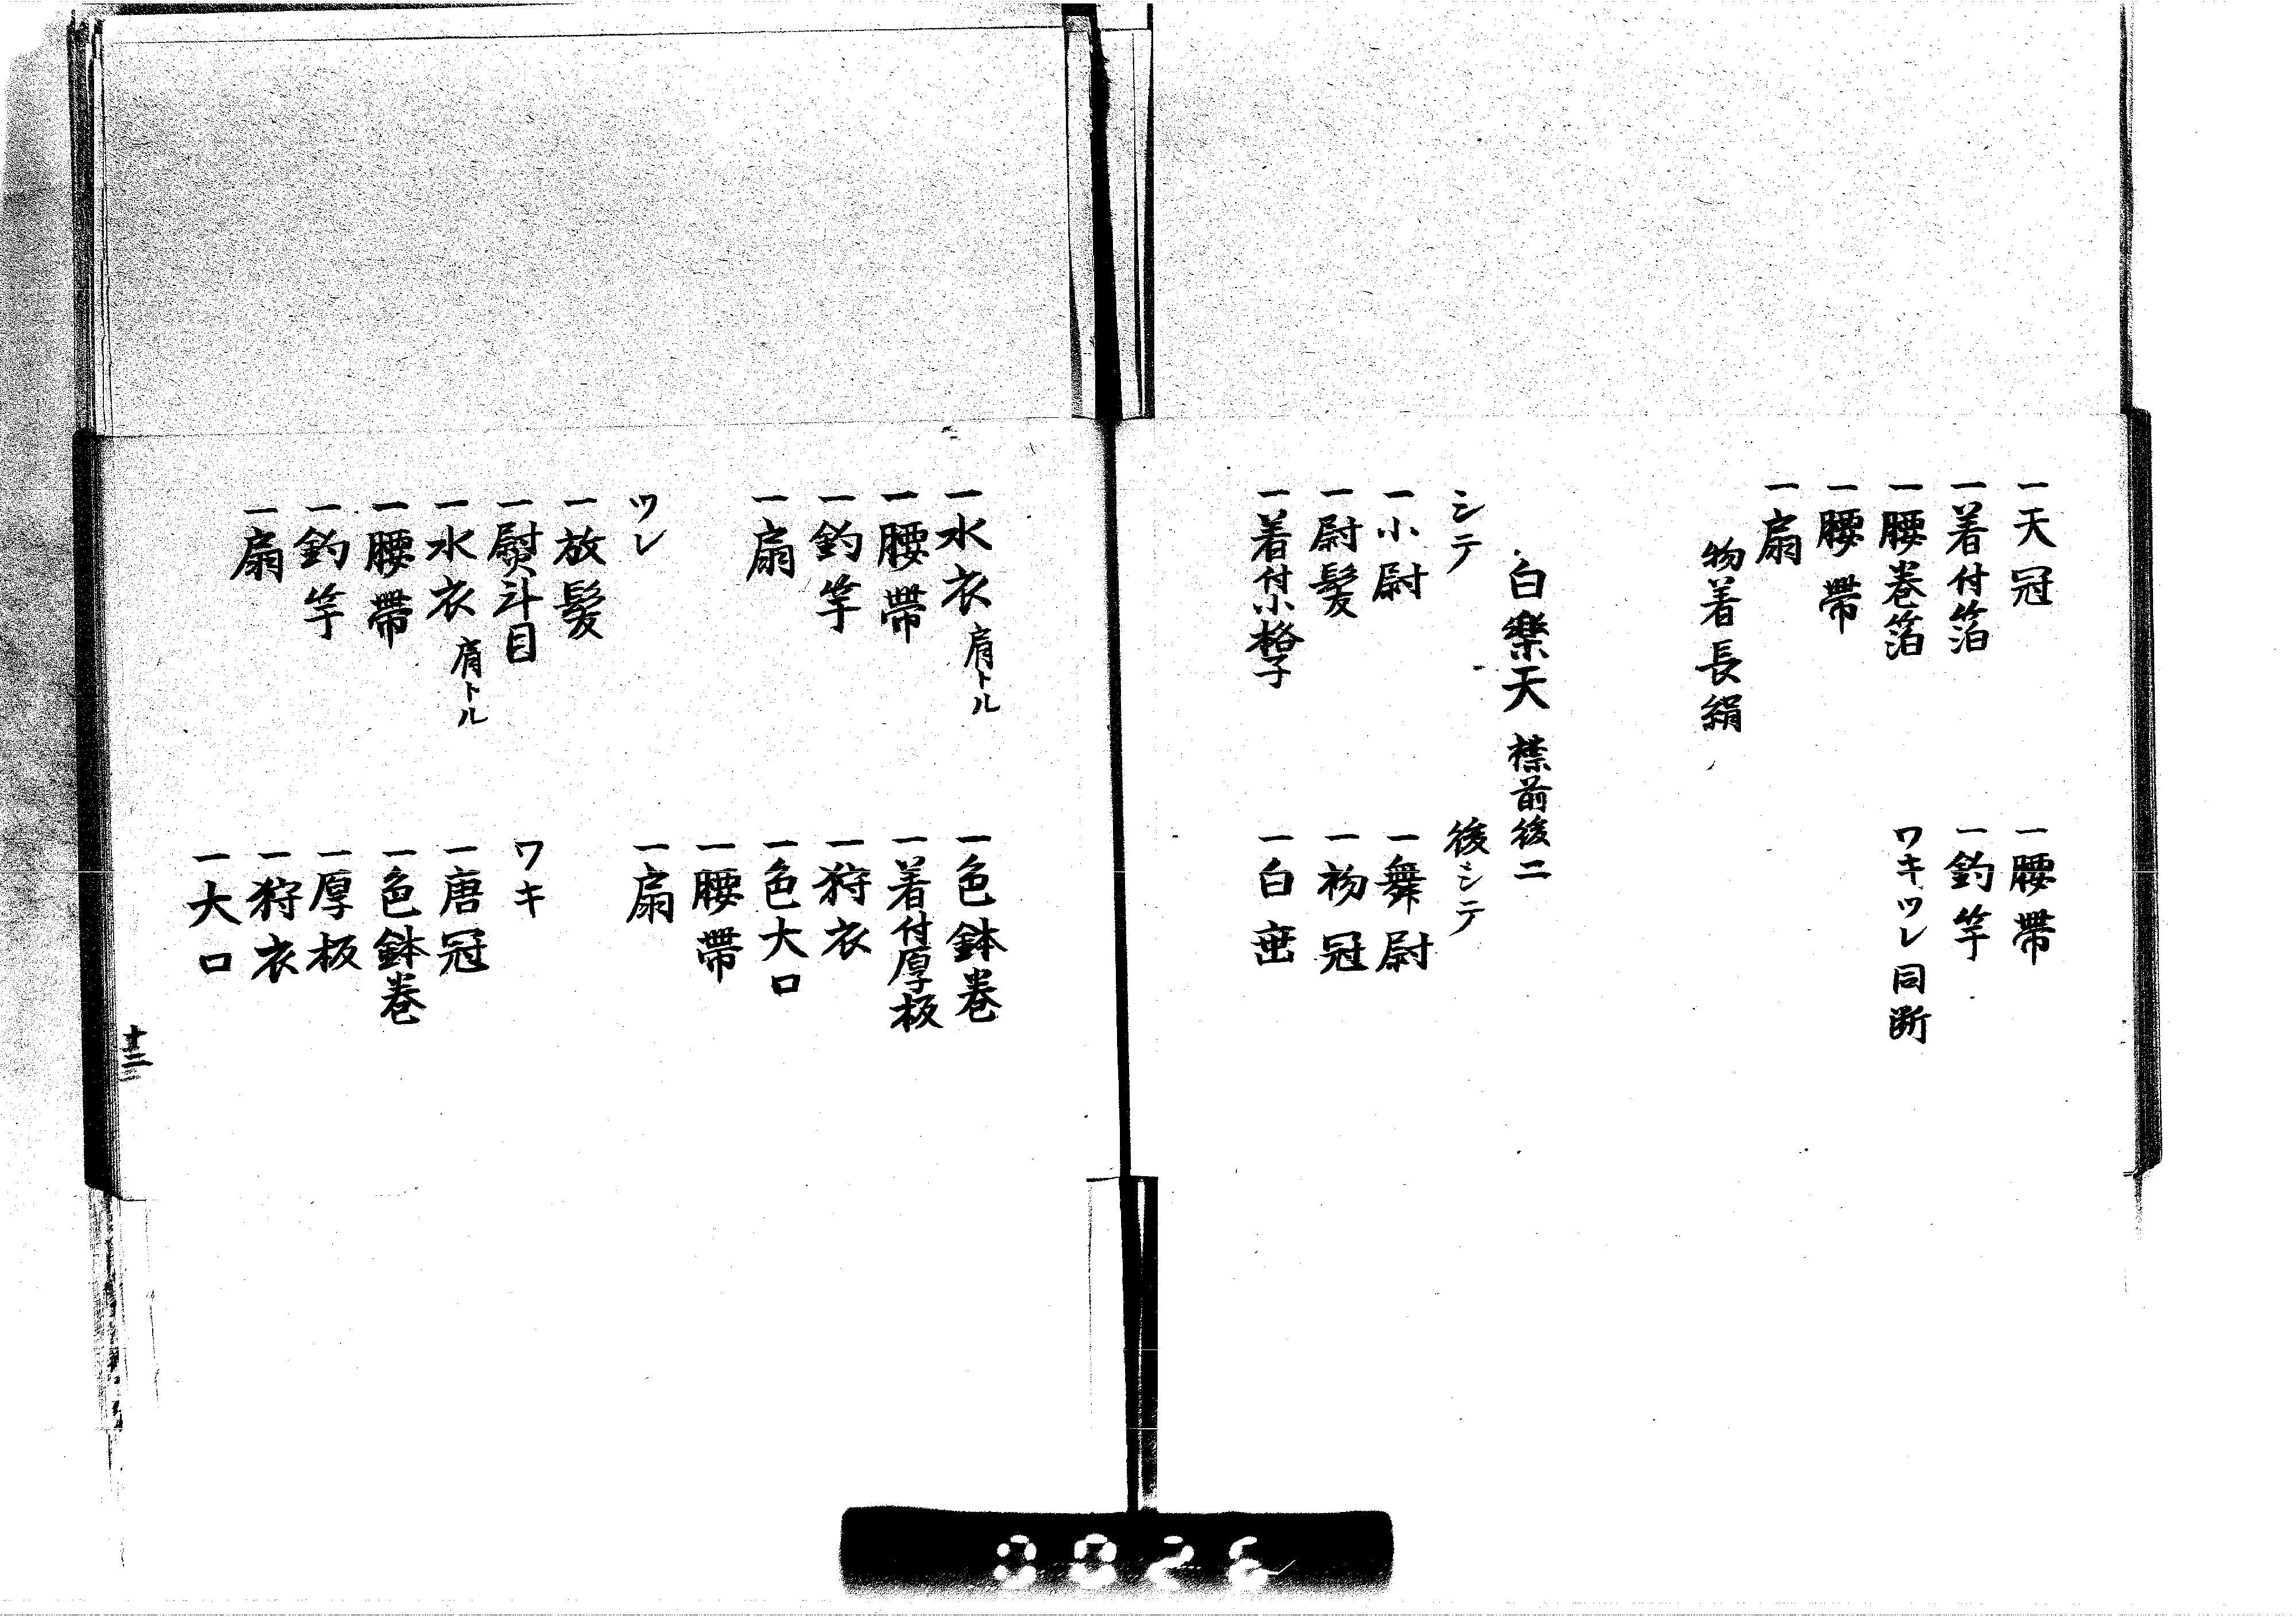 一天冠
一着付箔
一腰巻箔
一腰帯
一扇
物着長絹
一腰帯
一釣竿
ワキツレ同断
白樂天 襟前後二
シテ
一小尉
一尉髪
一着付小格子
後シテ
一舞尉
一初冠
一白垂
一水衣 肩トル
一腰帯
一釣竿
一扇
一色鉢巻
一着付厚板
一狩衣
一色大口
一腰帯
一扇
ツレ
一放髪
一熨斗目
一水衣 肩トル
一腰帯
一釣竿
一扇
ワキ
一唐冠
一色鉢巻
一厚板
一狩衣
一大口